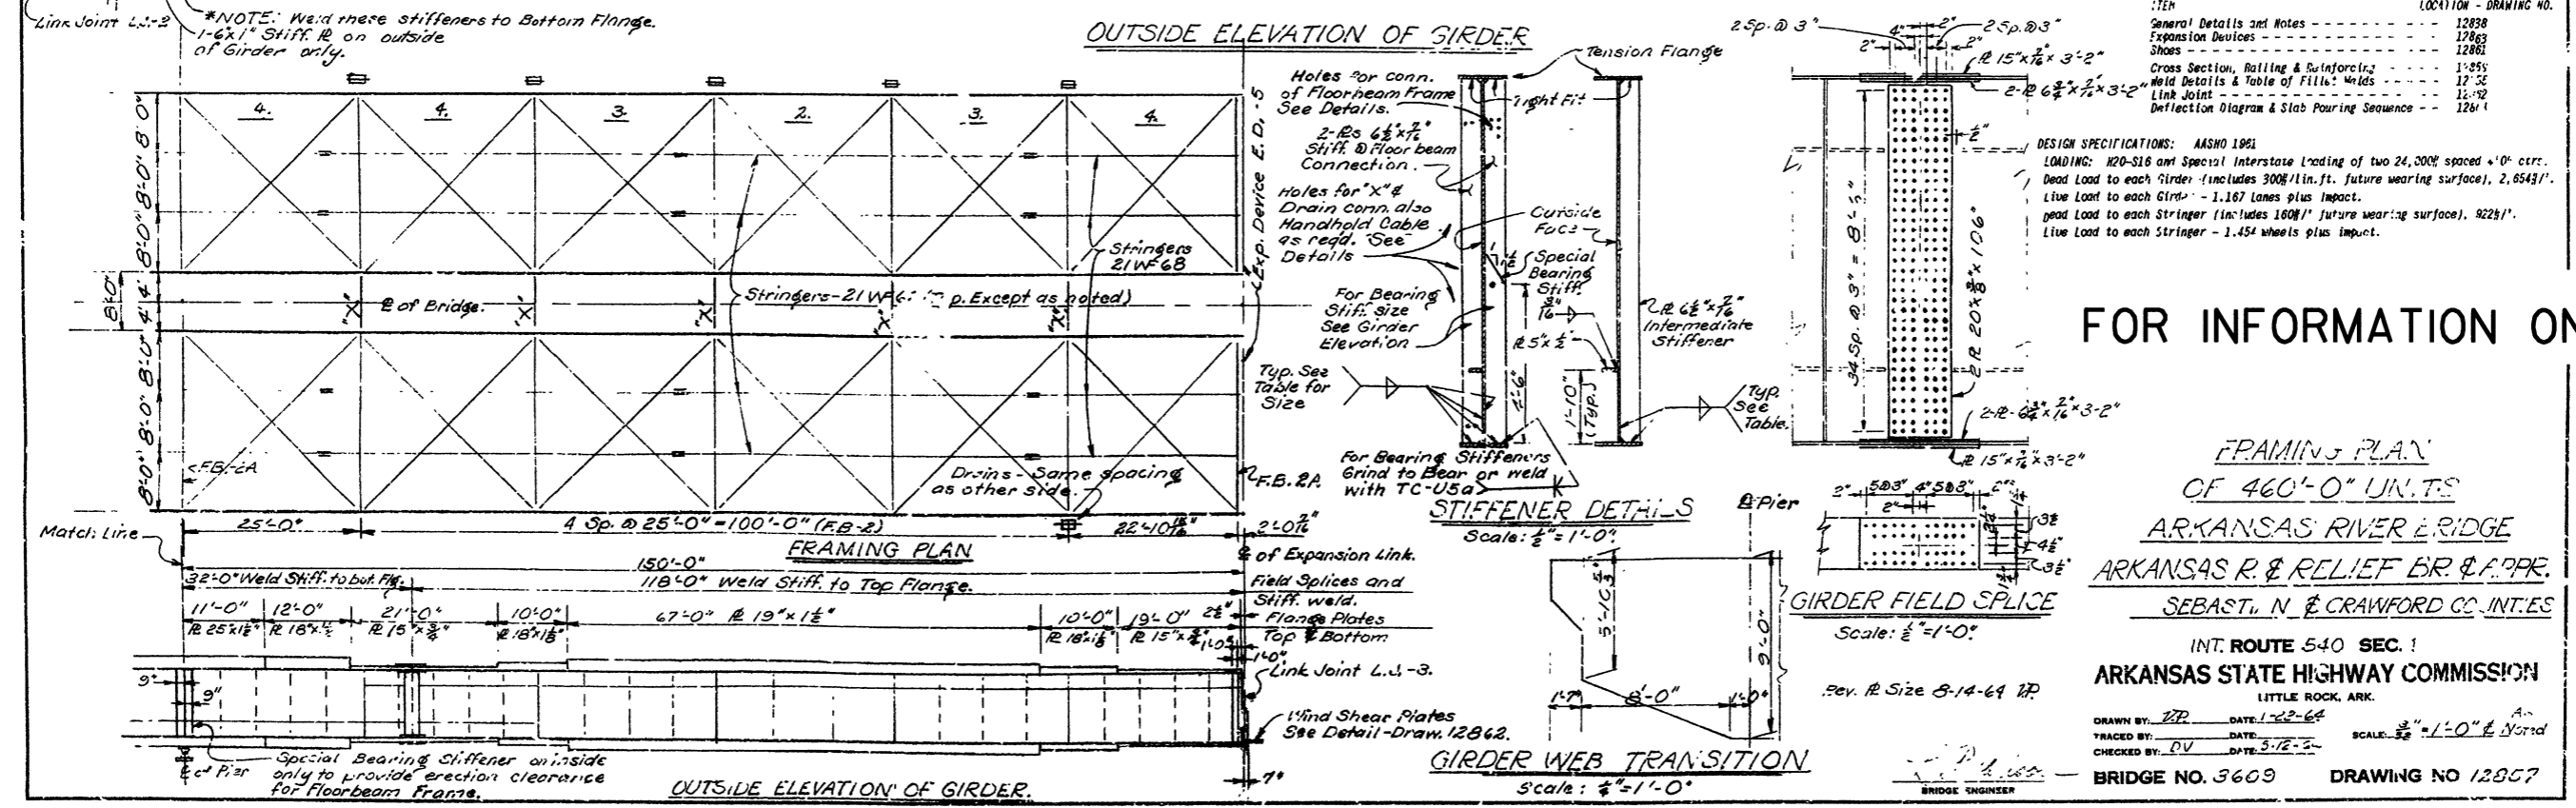 Link Joint L.J.-2
*NOTE: Weld these stiffeners to Bottom Flange.
1-6"x1" Stiff. ℞ on outside
of Girder only.
OUTSIDE ELEVATION OF GIRDER
4. 4. 3. 2. 3. 4.
8'-0" 8'-0" 8'-0"
8'-0"
4' 4'
8'-0" 8'-0" 8'-0"
"X" ℄ of Bridge. "X" "X" "X" "X"
Stringers
21 WF 68
Stringers-21 WF Except as noted)
Exp. Device E.D.-5
F.B.-2A
Drains - Same spacing
as other side.
F.B. 2A
Match Line
25'-0"
4 Sp. @ 25'-0" = 100'-0" (F.B-2)
22'-10
2'-0
FRAMING PLAN
℄ of Expansion Link.
150'-0"
32'-0" Weld Stiff. to bot. Flg.
118'-0" Weld Stiff. to Top Flange.
Field Splices and
Stiff. weld.
11'-0" 12'-0" 21'-0" 10'-0" 67'-0" ℞ 19"x1½" 10'-0" 19'-0" 2½"
℞ 25"x1½" ℞ 15"x¾" ℞ 18"x1⅛" ℞ 18"x1⅛" ℞ 15"x¾"
Flange Plates
Top & Bottom
1'-0"
1'-0"
Link Joint L.J.-3.
9"
9"
Wind Shear Plates
See Detail-Draw. 12862.
℄ of Pier
Special Bearing Stiffener on inside
only to provide erection clearance
for Floorbeam Frame.
7"
OUTSIDE ELEVATION OF GIRDER.
Tension Flange
Holes for conn.
of Floorbeam Frame
See Details.
Tight Fit
2-℞s 6½"x7/16"
Stiff. @ Floor beam
Connection.
Holes for "X" &
Drain conn. also
Handhold Cable
as reqd. See
Details
Outside
Face
Special
Bearing
Stiff.
For Bearing
Stiff. size
See Girder
Elevation
℞ 6½"x7/16"
Intermediate
Stiffener
3/16
℞ 5"x½"
Typ. See
Table for
Size
1'-10"
(Typ.)
Typ.
See
Table.
For Bearing Stiffeners
Grind to Bear or weld
with TC-U5a
STIFFENER DETAILS
Scale: ½"=1'-0"
℄ Pier
5'-10
9'-0"
1'-7" 8'-0" 1'-0"
GIRDER WEB TRANSITION
Scale: ¼"=1'-0"
2 Sp. @ 3" 2" 2 Sp. @ 3"
4"
2" 2"
℞ 15"x7/16"x 3'-2"
2-℞ 6¾"x7/16"x3'-2"
½"
34 Sp. @ 3" = 8'-5"
2 ℞ 20"x⅜"x106"
2-℞-6¾"x7/16"x3'-2"
℞ 15"x7/16"x3'-2"
2" 5@3" 4" 5@3" 2"
2"
3½"
4½"
3½"
GIRDER FIELD SPLICE
Scale: ½"=1'-0"
Rev. ℞ Size 8-14-64 V.P.
ITEM LOCATION - DRAWING NO.
General Details and Notes - - - - - - - - 12838
Expansion Devices - - - - - - - - 12863
Shoes - - - - - - - - 12861
Cross Section, Railing & Reinforcing - - - -
Weld Details & Table of Fillet Welds - - - - -
Link Joint - - - - - - - -
Deflection Diagram & Slab Pouring Sequence - -
DESIGN SPECIFICATIONS: AASHO 1961
LOADING: H20-S16 and Special Interstate Loading of two 24,000# spaced 4'0" ctrs.
Dead Load to each Girder (includes 300#/lin.ft. future wearing surface), 2,654#/'.
Live Load to each Girder - 1.167 lanes plus impact.
Dead Load to each Stringer (includes 160#/' future wearing surface), 922#/'.
Live Load to each Stringer - 1.454 wheels plus impact.
FOR INFORMATION ON
FRAMING PLAN
OF 460'-0" UNITS
ARKANSAS RIVER BRIDGE
ARKANSAS R. & RELIEF BR. & APPR.
SEBASTIAN & CRAWFORD COUNTIES
INT. ROUTE 540 SEC. 1
ARKANSAS STATE HIGHWAY COMMISSION
LITTLE ROCK, ARK.
DRAWN BY: V.P. DATE: 1-23-64
TRACED BY: DATE:
CHECKED BY: DV DATE:
SCALE: 3/32"=1'-0" & As Noted
BRIDGE ENGINEER
BRIDGE NO. 3609 DRAWING NO 12857